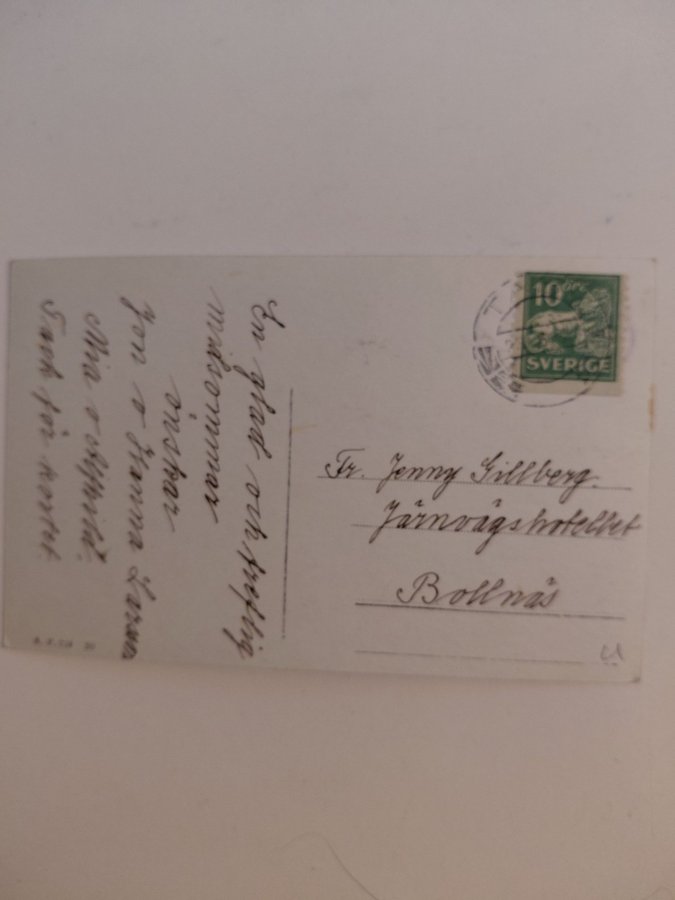 En glad och treflig
midsommar
önskar
Jon o Hanna Larsson
Mia o
Tack för kortet
10 ÖRE
SVERIGE
Fr. Jenny Gillberg.
Järnvägshotellet
Bollnäs